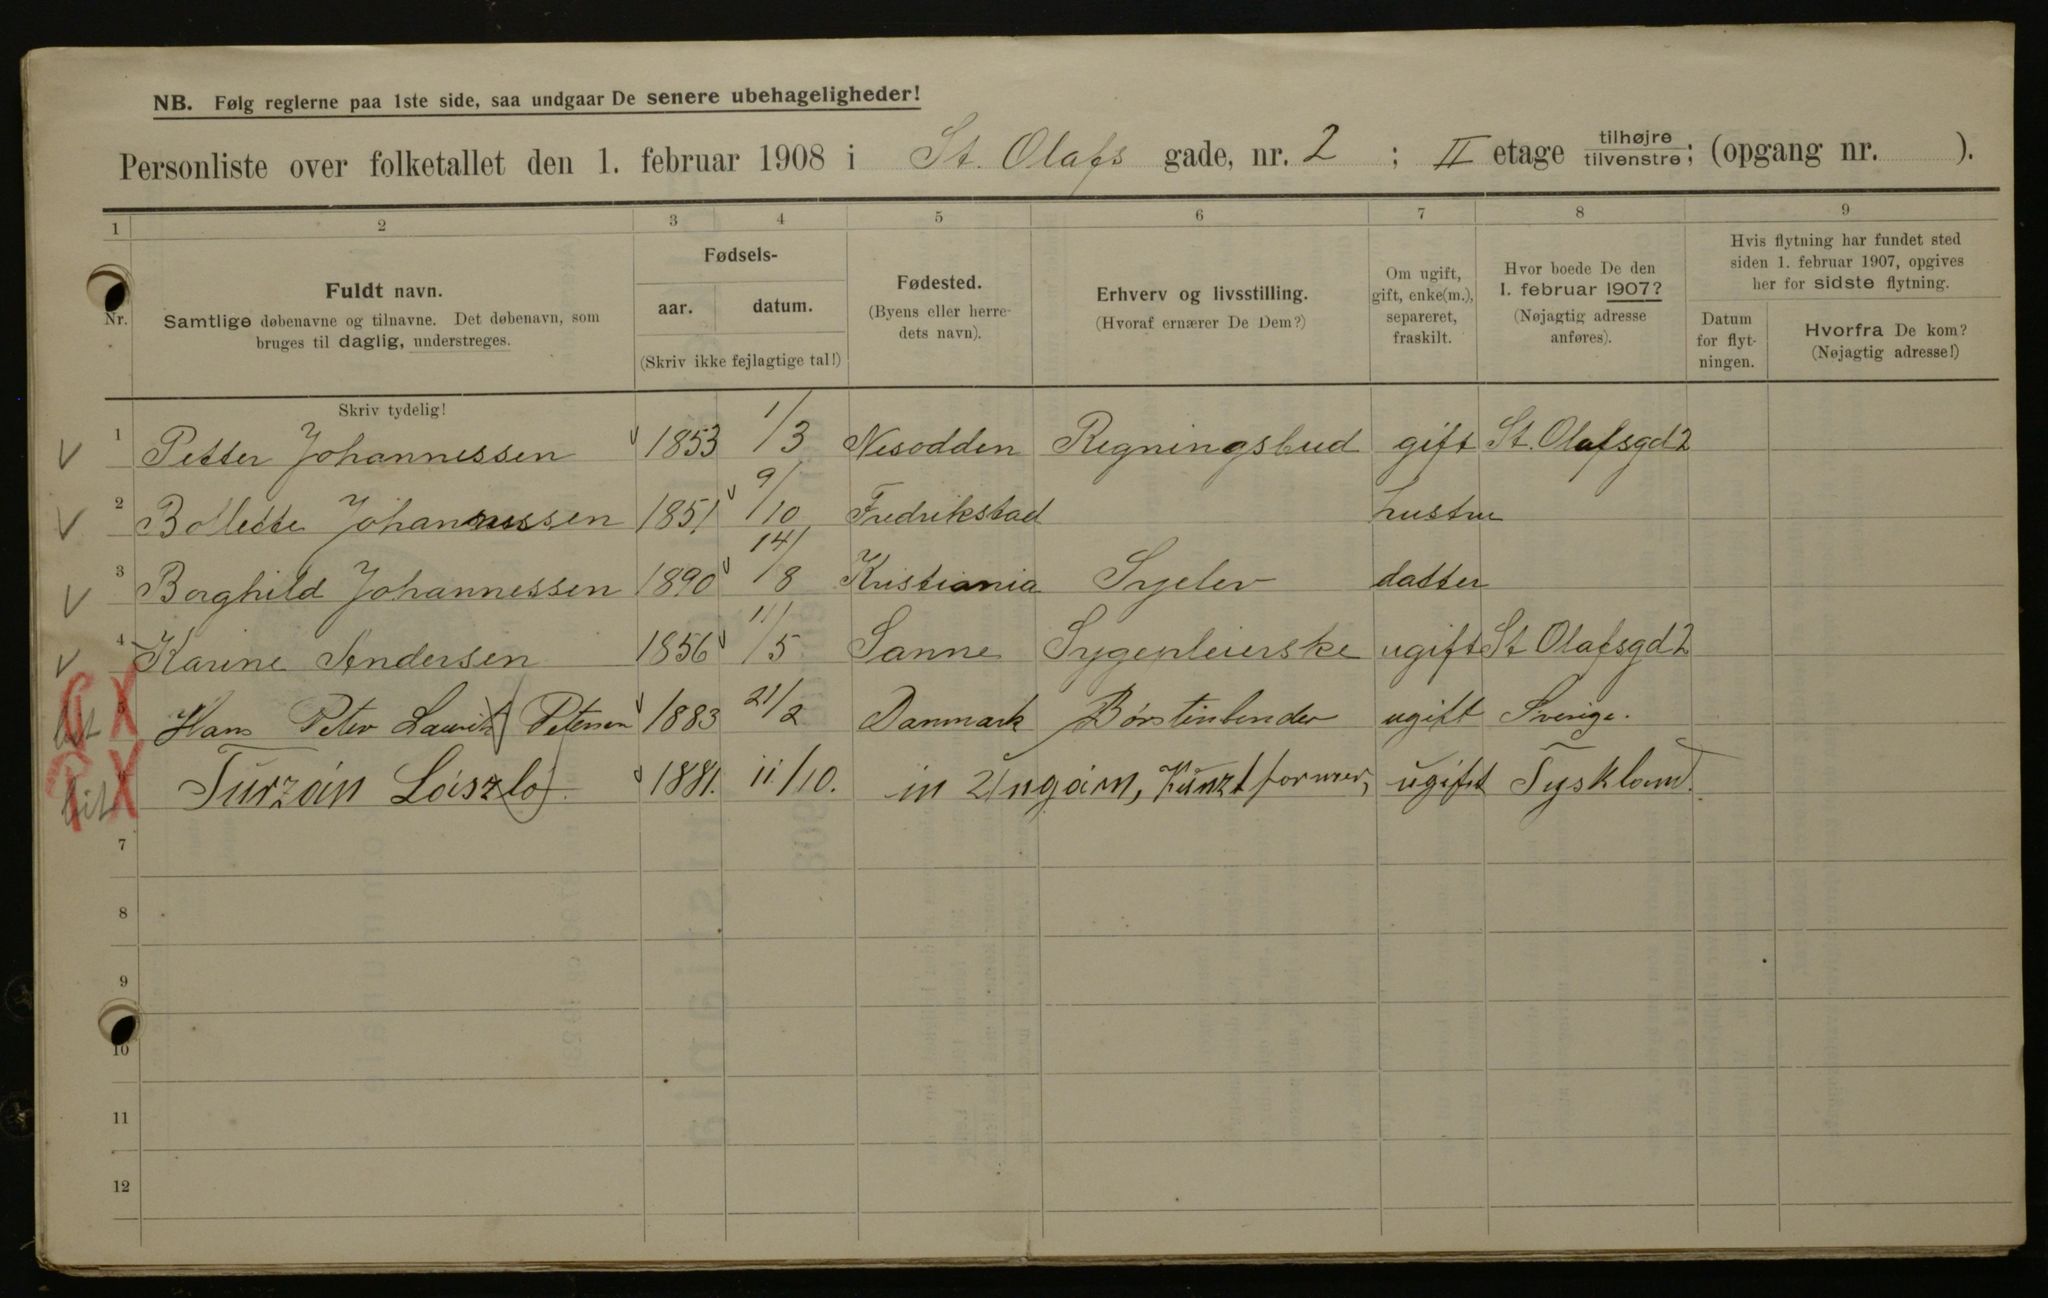 NB. Følg reglerne paa 1ste side, saa undgaar De senere ubehageligheder!
Personliste over folketallet den 1. februar 1908 i St. Olafs gade, nr. 2 ; II etage tilhøjre/tilvenstre; (opgang nr. ).
1 2 3 4 5 6 7 8 9
Nr.
Fuldt navn.
Samtlige døbenavne og tilnavne. Det døbenavn, som
bruges til daglig, understreges.
Fødsels-
aar. datum.
(Skriv ikke fejlagtige tal!)
Fødested.
(Byens eller herre-
dets navn).
Erhverv og livsstilling.
(Hvoraf ernærer De Dem?)
Om ugift,
gift, enke(m.),
separeret,
fraskilt.
Hvor boede De den
1. februar 1907?
(Nøjagtig adresse
anføres).
Hvis flytning har fundet sted
siden 1. februar 1907, opgives
her for sidste flytning.
Datum
for flyt-
ningen.
Hvorfra De kom?
(Nøjagtig adresse!)
Skriv tydelig!
1 Petter Johannessen 1853 1/3 Nesodden Regningsbud gift St. Olafsgd 2
2 Bollette Johannessen 1851 9/10 Fredrikstad hustru
3 Borghild Johannessen 1890 14/8 Kristiania Syelev datter
4 Karine Andersen 1856 11/5 Sanne Sygepleierske ugift St Olafsgd 2
5 Hans Peter Lauritz Petersen 1883 21/2 Danmark Børstinbinder ugift Sverige.
Turzán László 1881. 11/10. in Ungarn, Kunztformer, ugift Tyskland.
7
8
9
10
11
12